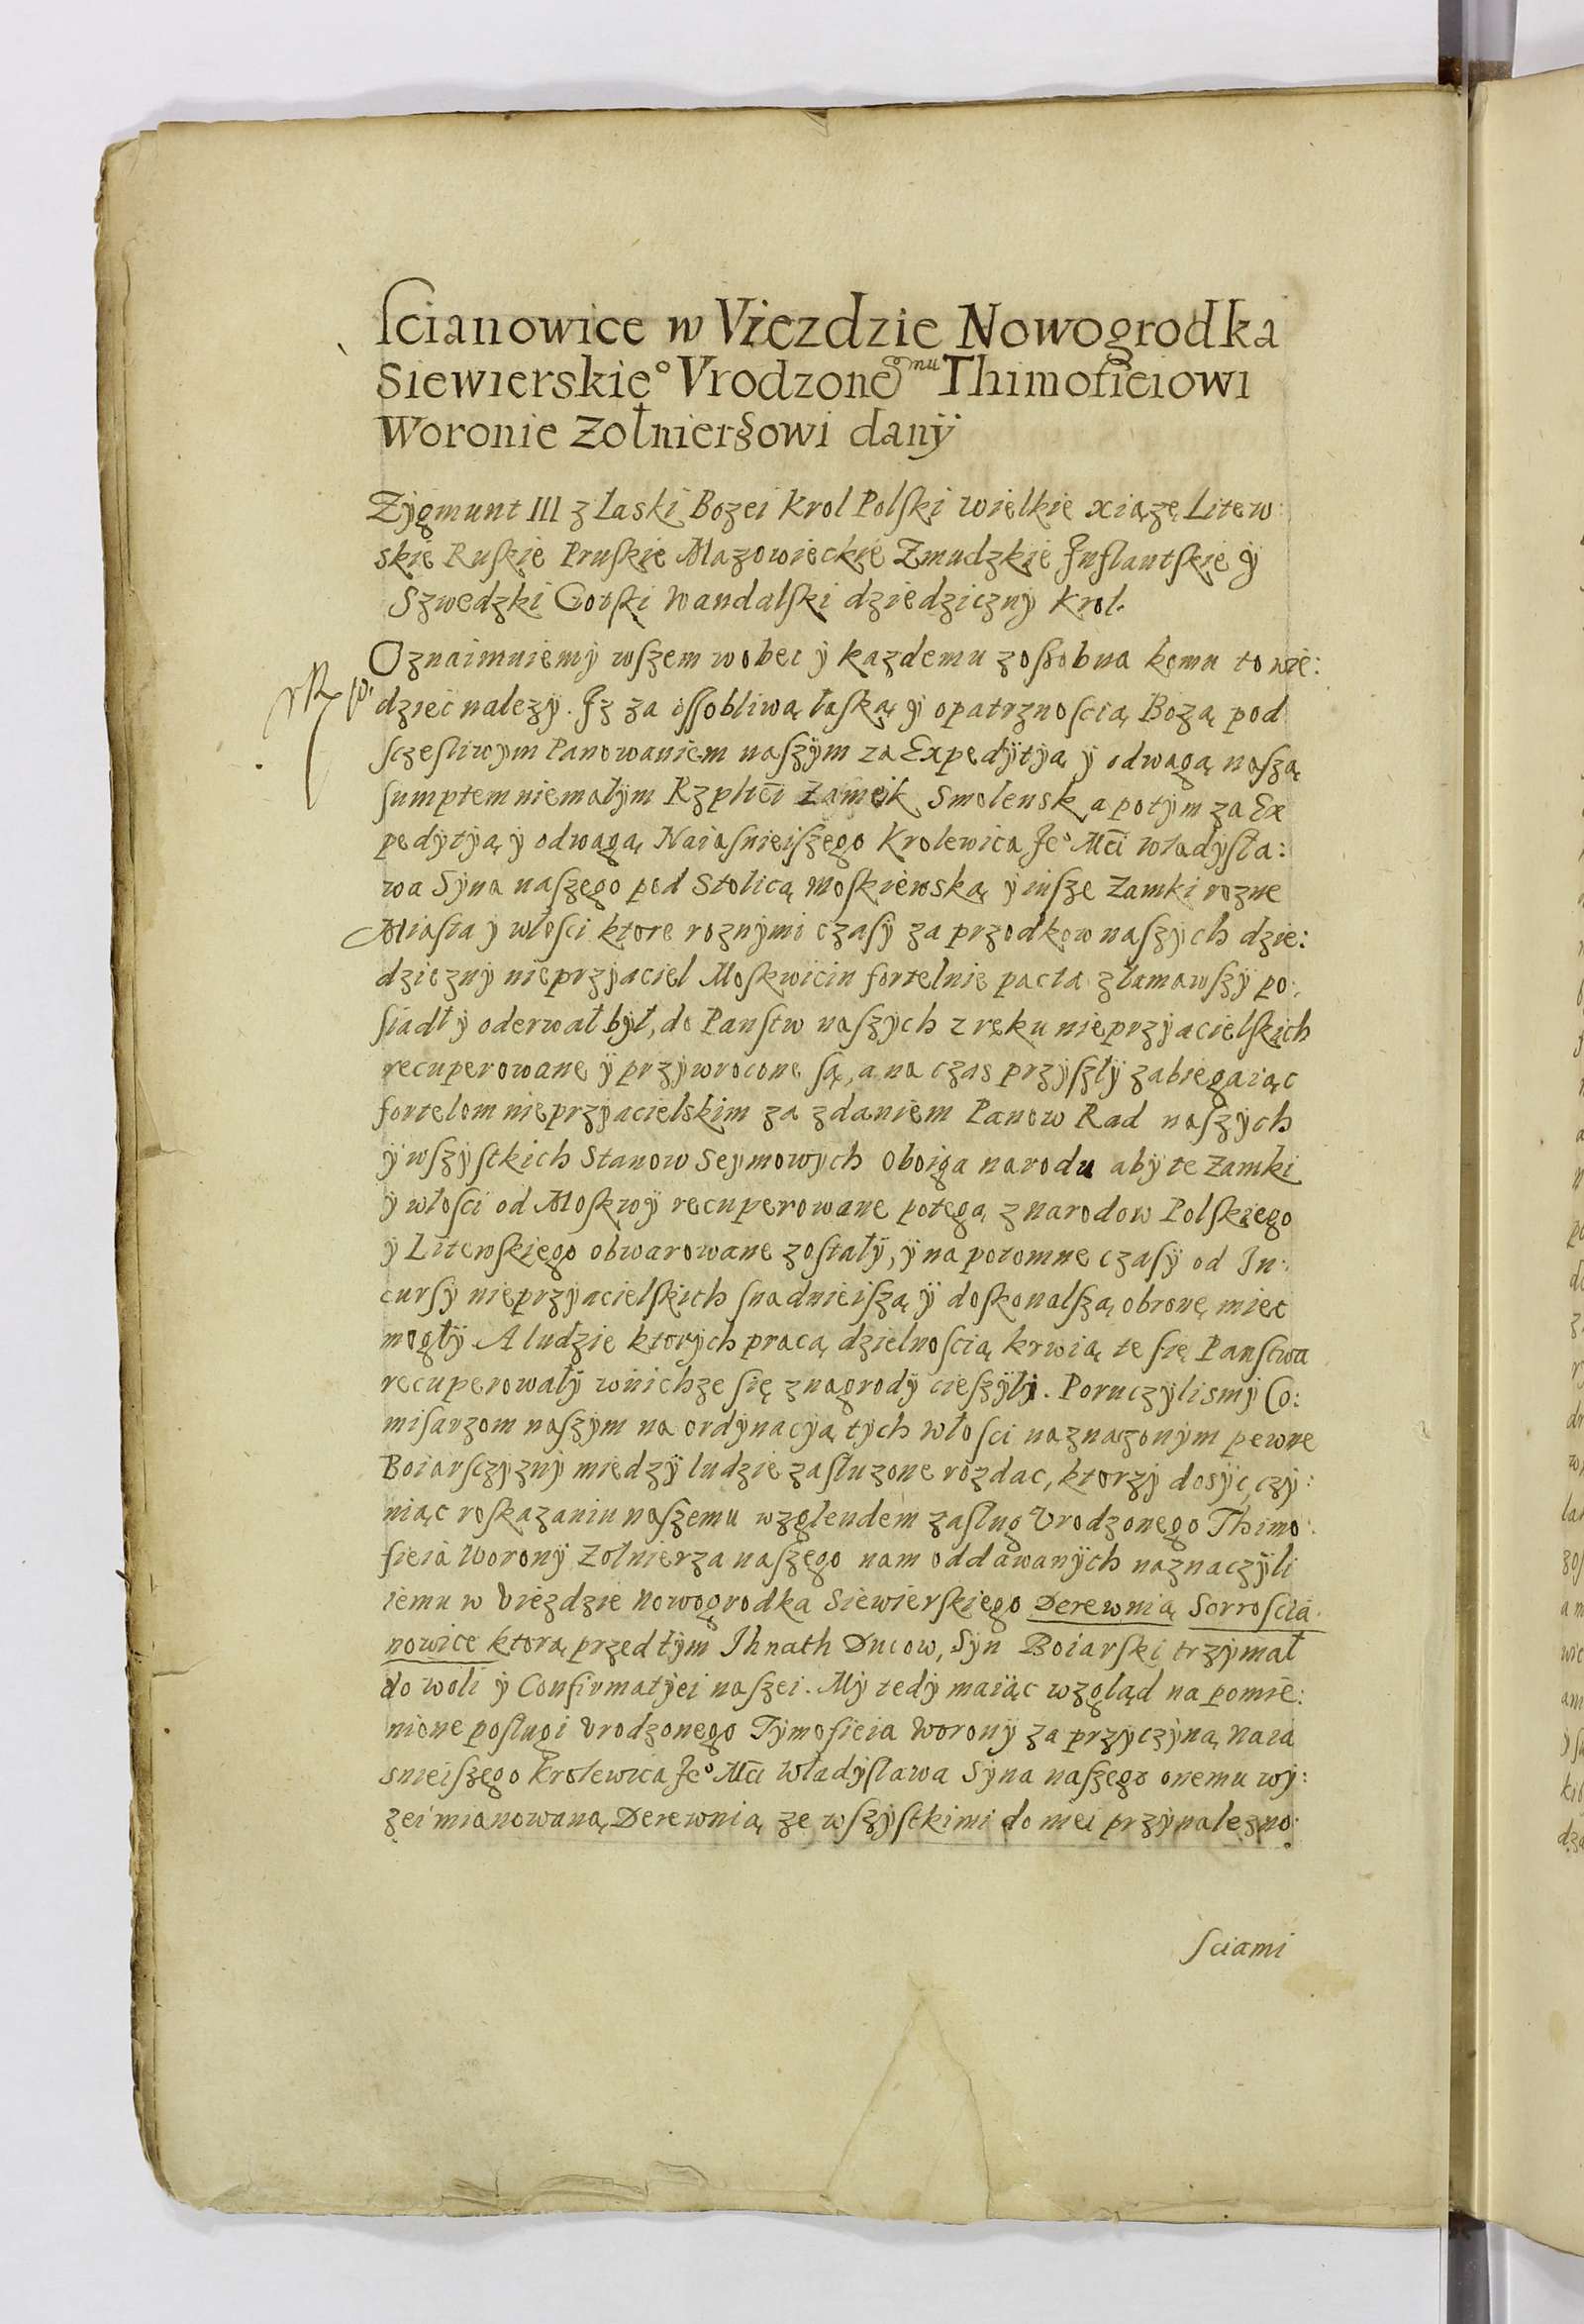 scianowice w Viezdzie Nowogrodka
Siewierskie° Vrodzonemu Thimofieiowi
Woronie Zołnierzowi dany
Zygmunt III z Łaski Bozei Krol Polski wielkie xiązę Litew:
skie Ruskie Pruskie Mazowieckie Zmudzkie Inflantskie y
Szwedzki Gotski Wandalski dziedziczny Krol.
Oznaimuiemy wszem wobec y kazdemu zossobna komu to wie:
dziec nalezy. Iz za ossobliwą łaską y opatrznoscią Bozą pod
sczesliwym Panowaniem naszym za Expedytyą y odwagą naszą
sumptem niemałym Rzpltei Zamek Smolensk a potym za Ex
pedytyą y odwagą Naiasnieiszego Krolewica Ie° Mci Władysła:
wa Syna naszego pod Stolicą Moskiewską y insze Zamki rozne
Miasta y włosci ktore roznymi czasy za przodkow naszych dzie:
dziczny nieprzyaciel Moskwicin fortelnie pacta złamawszy po:
siadł y oderwał był, do Panstw naszych z ręku nieprzyacielskich
recuperowane y przywrocone są, a na czas przyszły zabiegaiąc
fortelom nieprzyacielskim za zdaniem Panow Rad naszych
y wszystkich Stanow Seymowych oboiga narodu aby te Zamki
y włosci od Moskwy recuperowane potegą z narodow Polskiego
y Litewskiego obwarowane zostały, y na potomne czasy od In:
cursy nieprzyacielskich snadnieiszą y doskonalszą obronę miec
mogły A ludzie ktorych pracą dzielnoscią krwią te się Panstwa
recuperowały w nichze się z nagrody cieszyły. Poruczylismy Co:
misarzom naszym na ordynacyą tych włosci naznaczonym pewne
Boiarsczyzny miedzy ludzie zasłuzone rozdac, ktorzy dosyc czy:
niąc roskazaniu naszemu wzglendem zasług Vrodzonego Thimo:
fieia Worony Zołnierza naszego nam oddawanych naznaczyli
iemu w Viezdzie Nowogrodka Siewierskiego Derewnią Sorroscia
nowice ktorą przed tym Ihnath Ducow, Syn Boiarski trzymał
do woli y Confirmatyei naszei. My tedy maiąc wzgląd na pomie:
nione posługi Vrodzonego Tymofieia Worony za przyczyną Naia
snieiszego Krolewica Ie° Mci Władysława Syna naszego onemu wy:
zei mianowaną Derewnią ze wszystkimi do niei przynalezno:
sciami